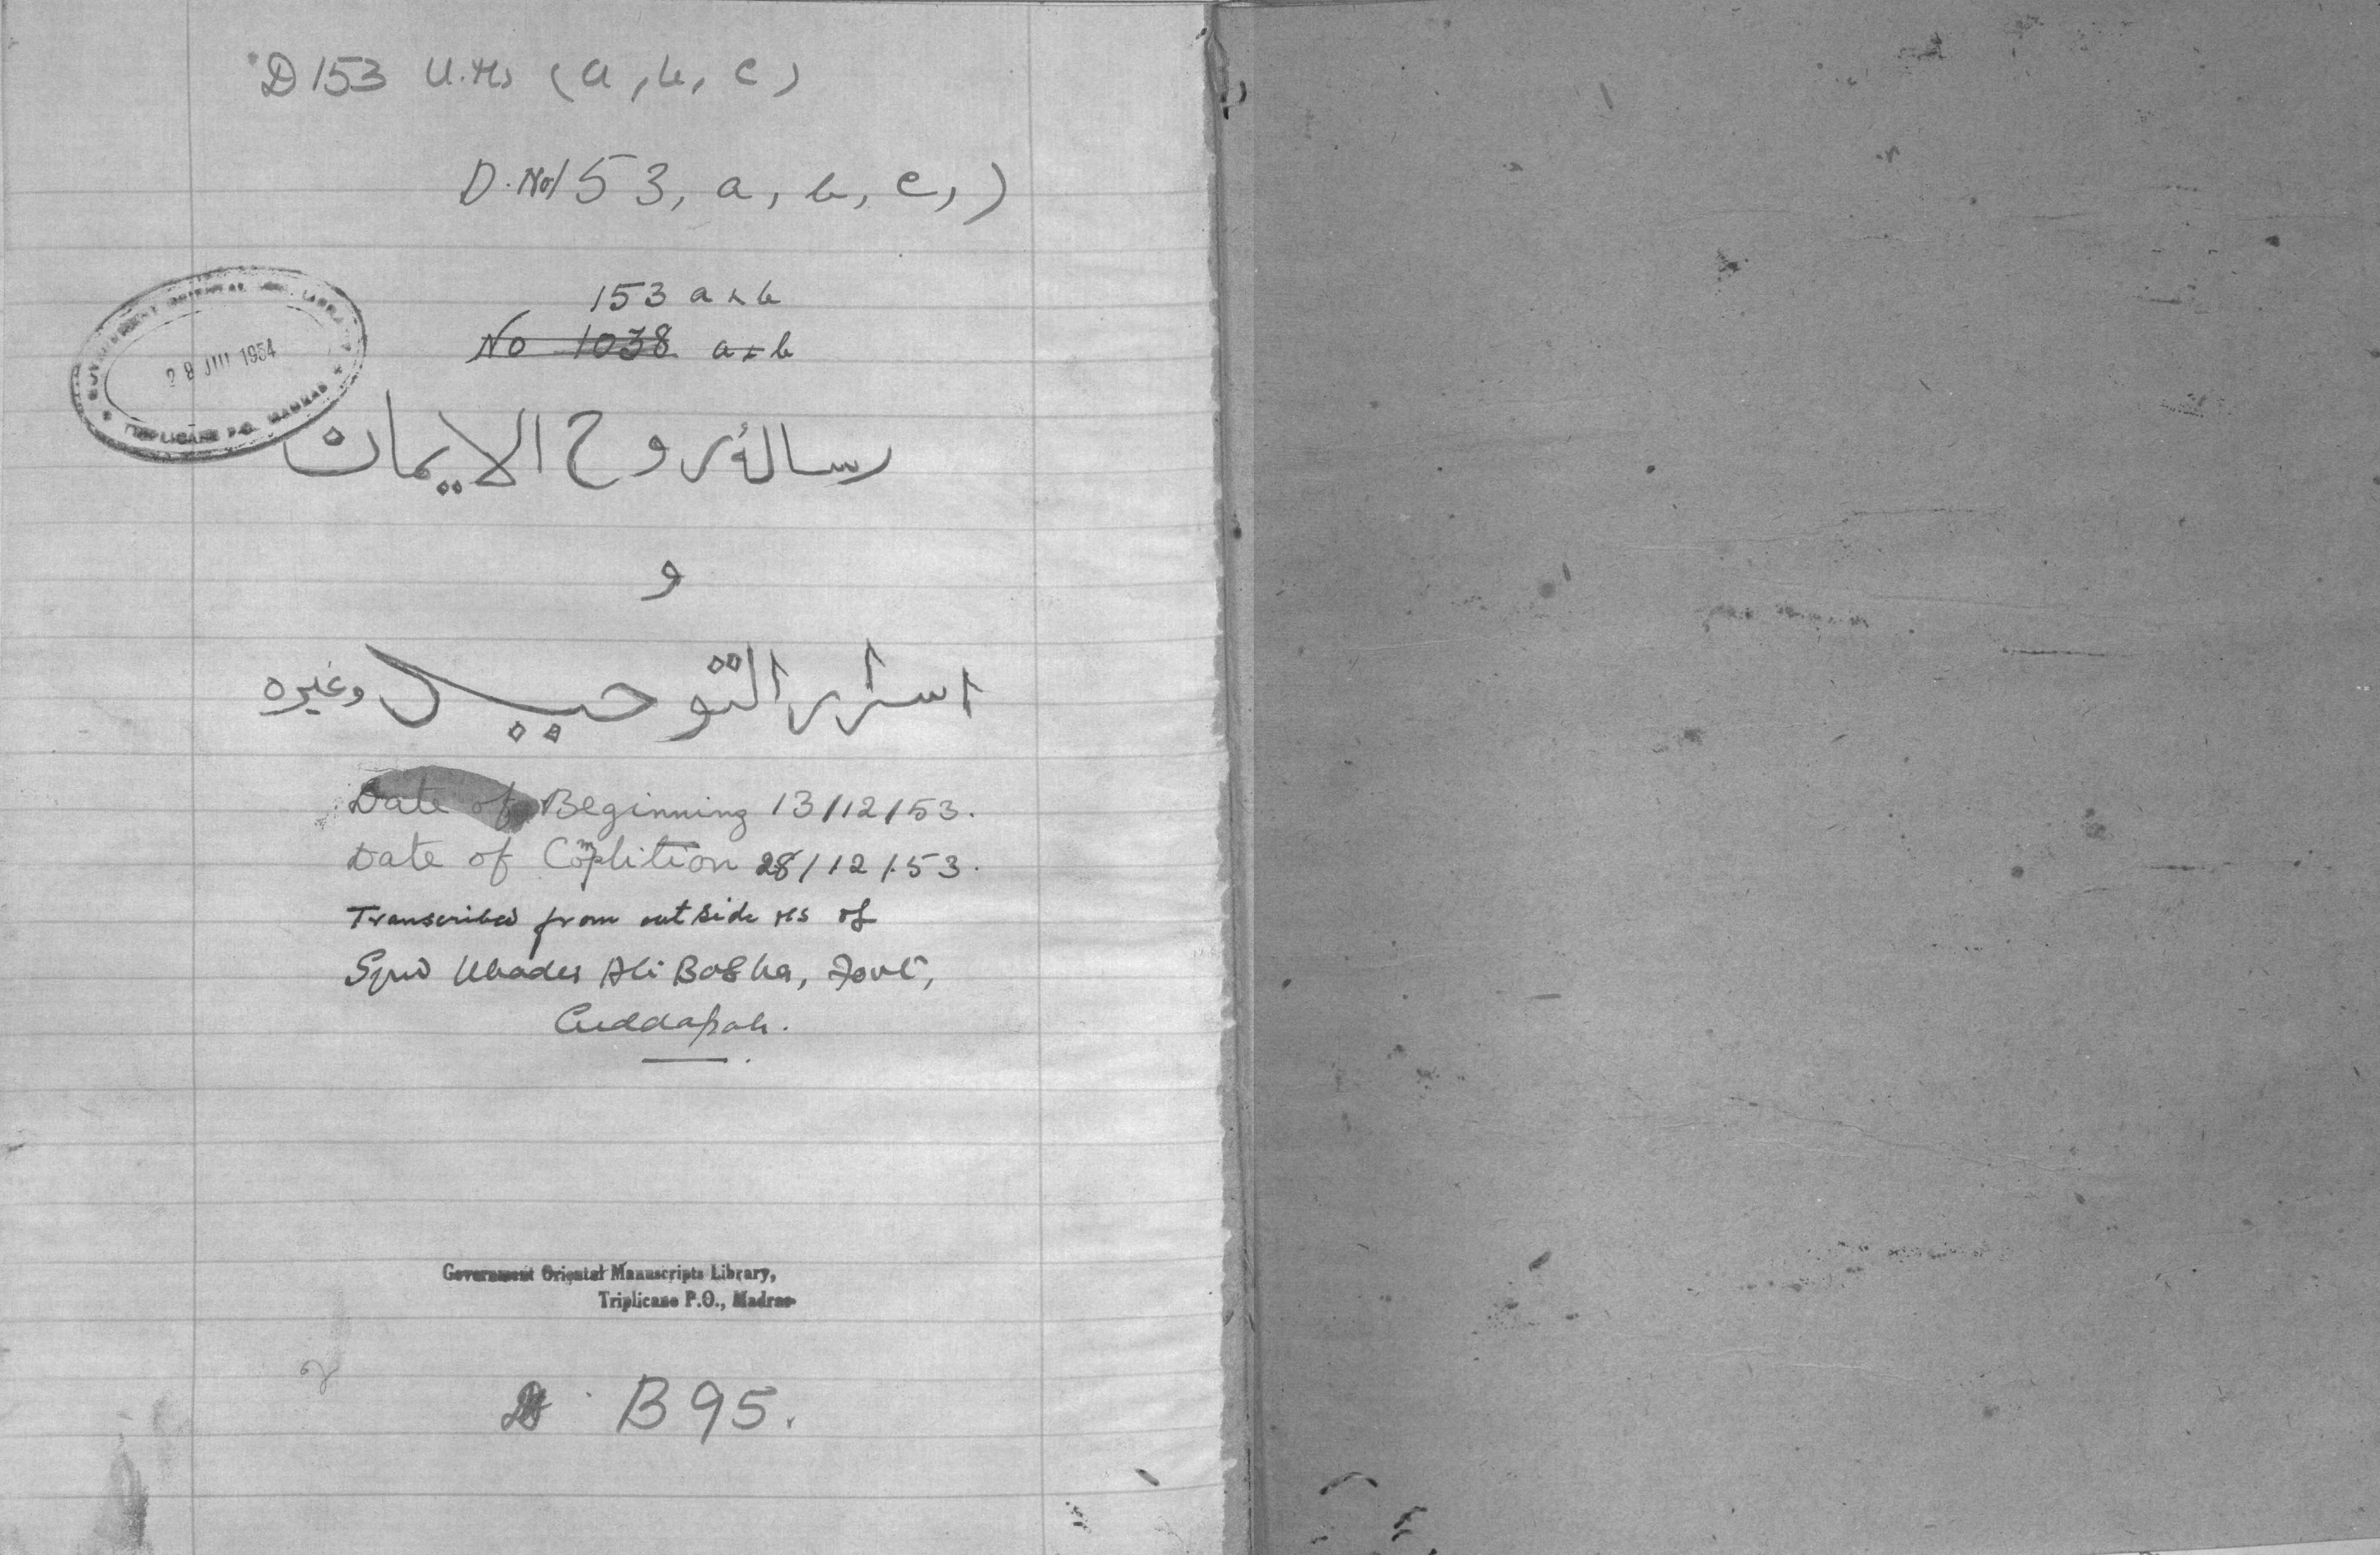 D 153 U.Ms (a, b, c)
D. No 153, a, b, c,)
153 a & b
No 1038 a & b
GOVERNMENT ORIENTAL MSS. LIBRARY
28 JUL 1954
TRIPLICANE P.O. MADRAS
رسالۂ روح الایمان
و
اسرار التوحید وغیرہ
Date of Beginning 13/12/53.
Date of Complition 28/12/53.
Transcribed from outside Ms of
Ali Basha,
Cuddapah.
Government Oriental Manuscripts Library,
Triplicane P.O., Madras
B 95.